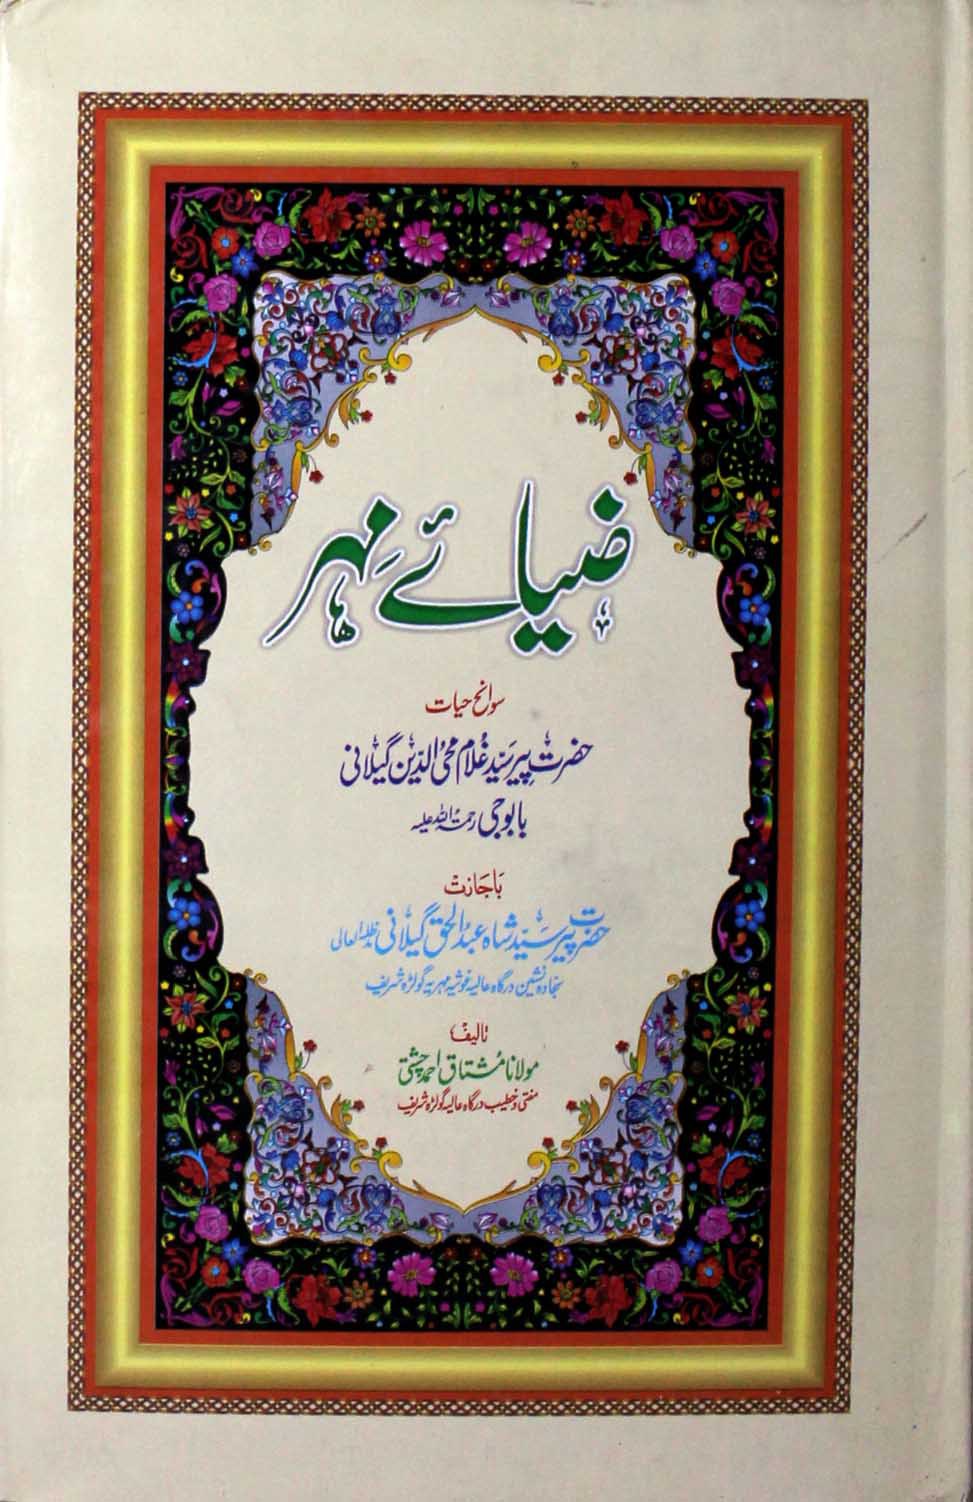 ضیائے مہر
سوانح حیات
حضرت پیر سیّد غُلام محیُ الدّین گیلانی
بابوجی رحمۃ اللہ علیہ
باجازت
حضرت پیر سیّد شاہ عبدُ الحق گیلانی مدظلہ العالی
سجادہ نشین درگاہ عالیہ غوثیہ مہریہ گولڑہ شریف
تالیف
مولانا مُشتاق احمد چشتی
مفتی و خطیب درگاہ عالیہ گولڑہ شریف